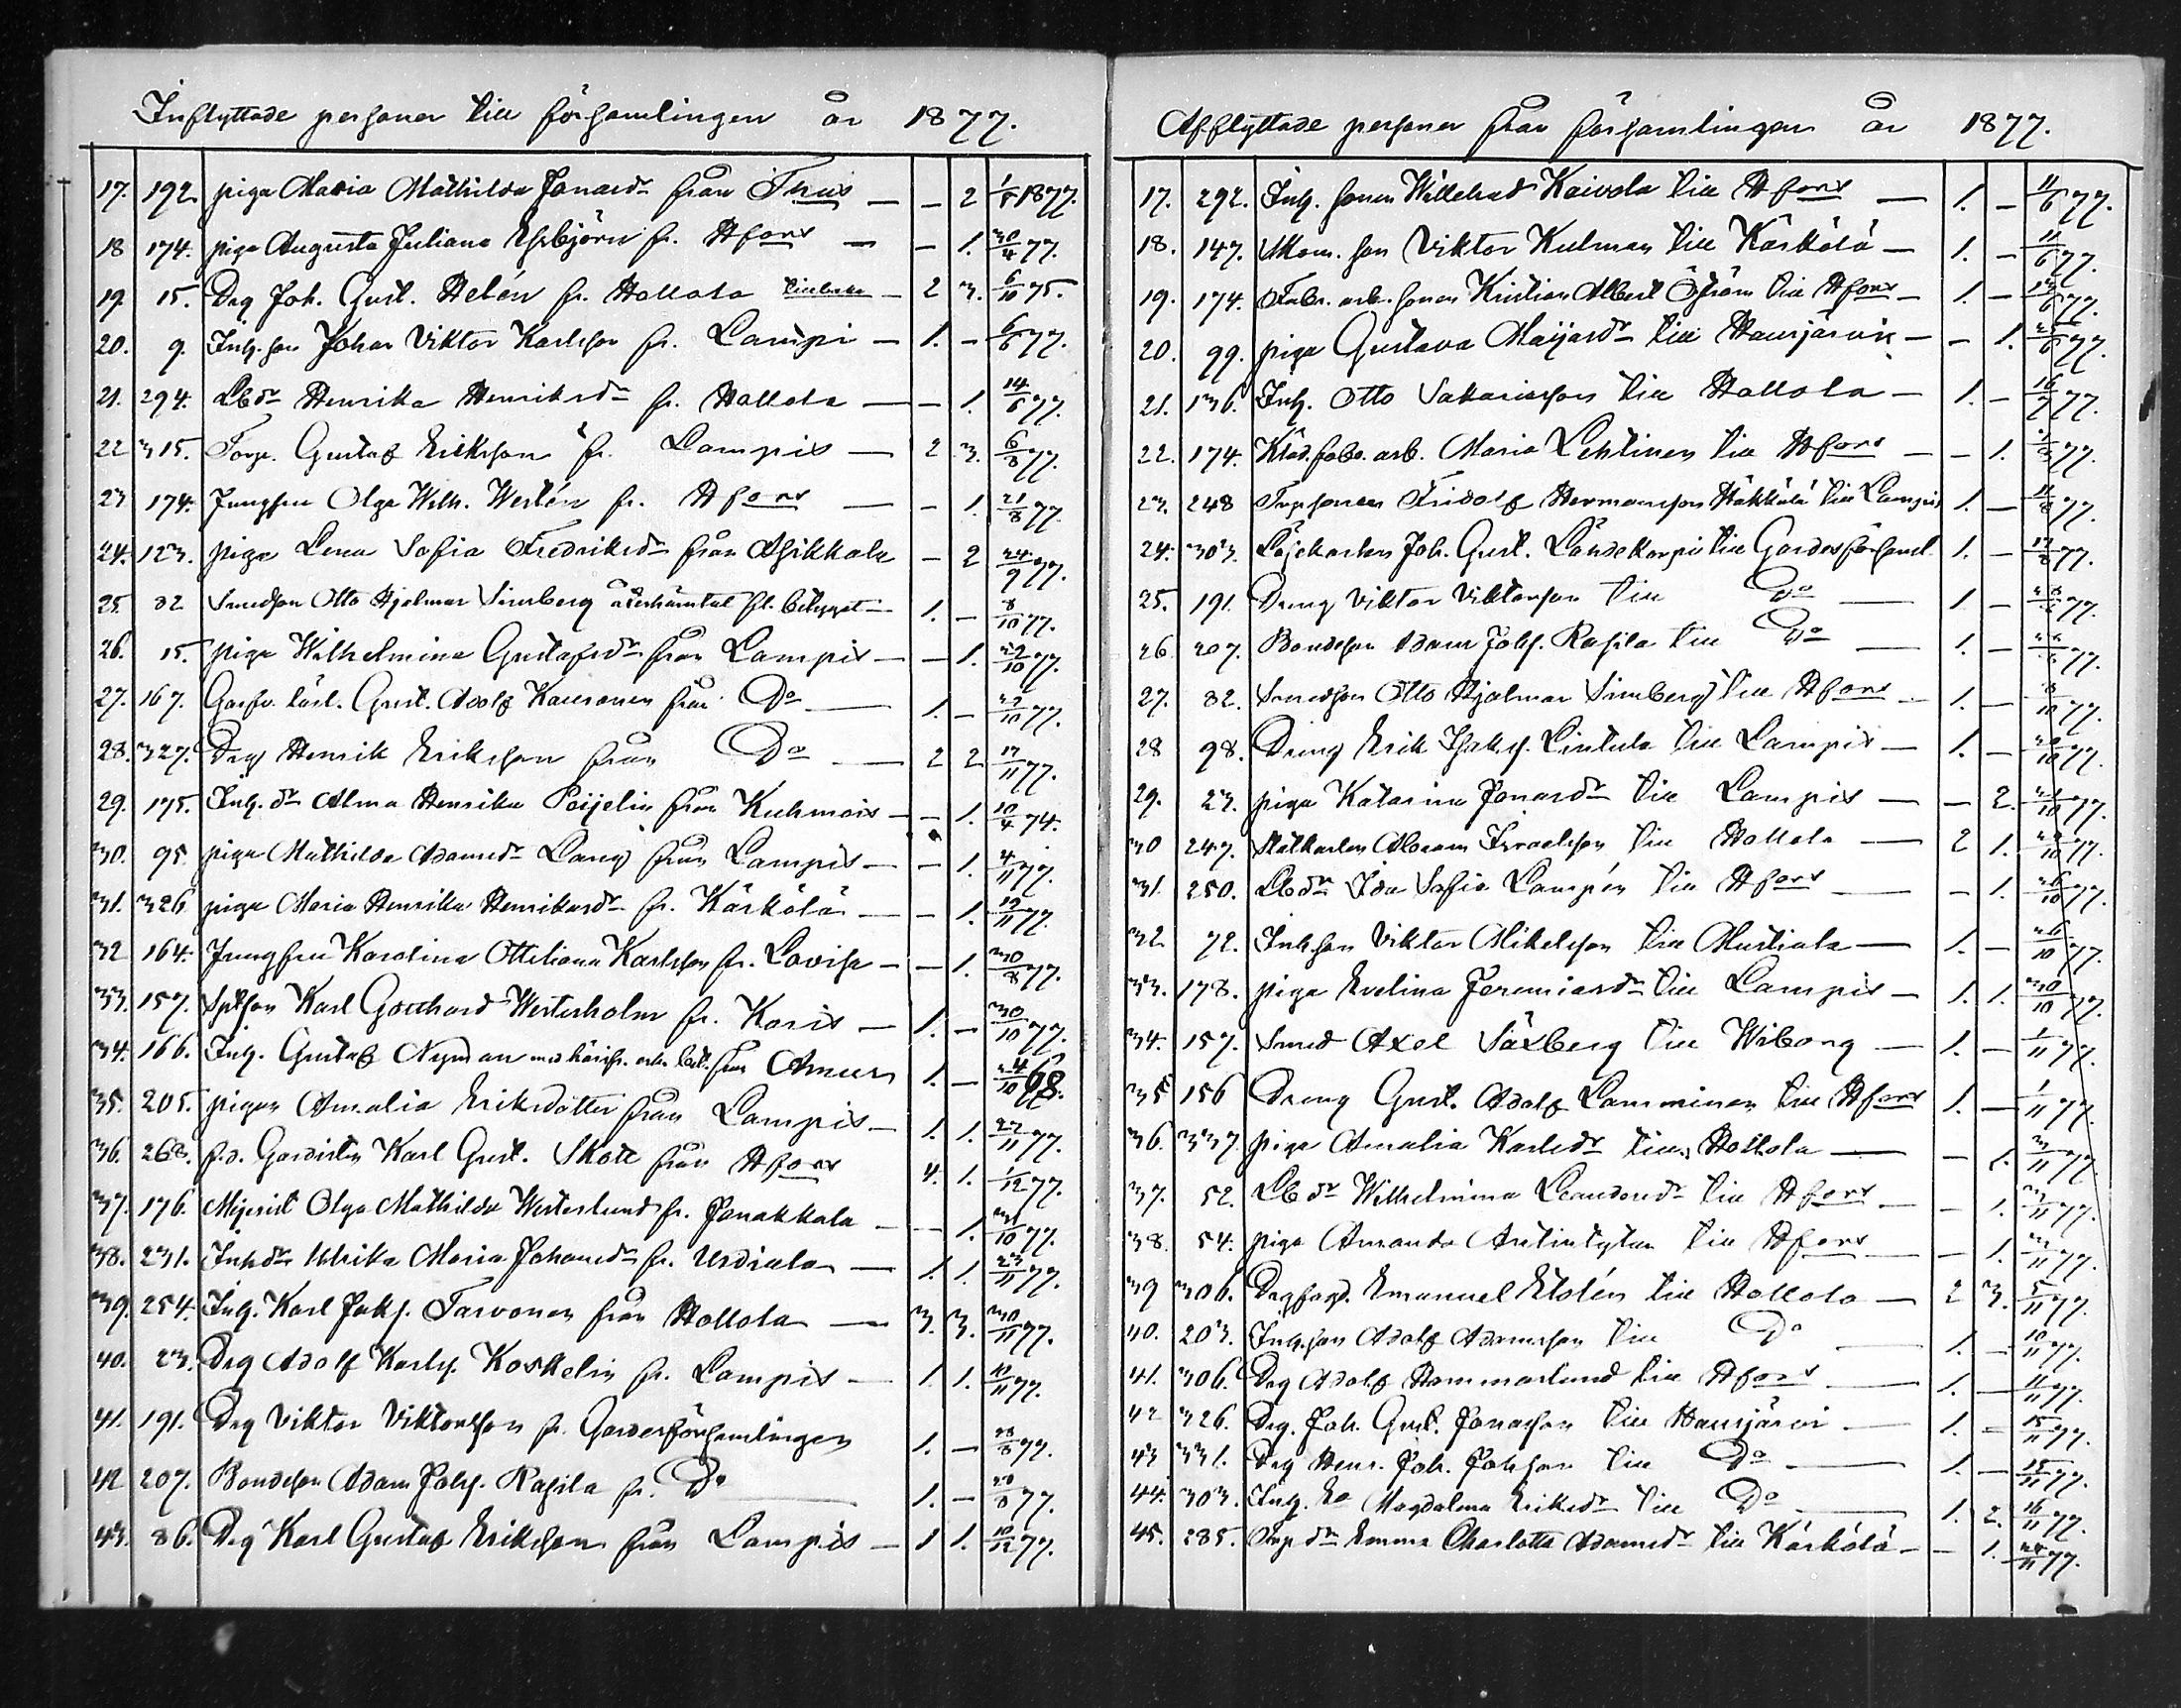 Inflyttade personer till församlingen år 1877.
17. 192. piga Maria Mathilda Jonasdr från Thus — — 2 1/5 1877.
18 174. piga Augusta Juliana Esbjörn fr. Hfors — — 1. 30/4 77.
19. 15. Drg Joh. Gust. Helén fr. Hollola — 2 3. 6/10 75.
20. 9. Inh. son Johan Viktor Karlsson fr. Lampis — 1. — 6/6 77.
21. 294. Lbdr Henrika Henriksdr fr. Hollola — — 1. 14/6 77.
22 315. Torp. Gustaf Eriksson fr. Lampis — 2 3. 6/8 77.
23 174. Jungfru Olga Wilh. Westén fr. Hfors — — 1. 21/8 77.
24. 123. piga Lena Sofia Fredriksdr från Asikkala — 2 24/9 77.
25. 82 Smedson Otto Hjalmar Simberg återhämtat fl. betyget — 1. — 8/10 77.
26. 15. piga Wilhelmina Gustafsdr från Lampis — — 1. 22/10 77.
27. 167. Garfv. lärl. Gust. Adolf Kausonen från Do — 1. — 22/10 77.
28. 327. Drg Henrik Eriksson från Do — 2 2 17/11 77.
29. 175. Inh. dr Alma Henrika Peijelin från Kuhmois — — 1. 10/4 74.
30. 95. piga Mathilda Adamsdr Lang från Lampis — — 1. 4/11 77.
31. 326 piga Maria Henrika Henriksdr fr. Kärkölä — — 1. 19/11 77.
32 164. Jungfru Karolina Ottiliana Karlsson fr. Lovisa — — 1. 30/8 77.
33. 157. Sptson Karl Gotthard Westerholm fr. Karis — 1. — 30/10 77.
34. 166. Inh. Gustaf Nyman från Amur 1. — 24/10 68.
35. 205. pigan Amalia Eriksdotter från Lampis — 1. 1. 22/11 77.
36. 268. f.d. Gardisten Karl Gust. Skott från Hfors 4. 1. 1/12 77.
37. 176. Mejerist Olga Mathilda Westerlund fr. Janakkala — — 1. 31/10 77.
38. 231. Inhdr Ulrika Maria Johansdr fr. Urdiala — 1. 1. 23/11 77.
39. 254. Inh. Karl Jakss. Tarvonen från Hollola — 3. 3. 30/11 77.
40. 23. Drg Adolf Karlss. Koskelin fr. Lampis — 1. 1. 10/11 77.
41. 191. Drg Viktor Viktorsson fr. Gardesförsamlingen 1. — 28/8 77.
42 207. Bondeson Adam Johss. Rapila fr. Do — 1. — 28/8 77.
43. 86. Drg Karl Gustaf Eriksson från Lampis — 1 1. 10/12 77.
Afflyttade personer från församlingen år 1877.
17. 292. Inh. sonen Willehad Koivola till Hfors — 1. — 11/6 77.
18. 147. Skom. son Viktor Kulman till Kärkölä — 1. — 11/6 77.
19. 174. Fabr. arb. sonen Kristian Albert Öström till Hfors — 1. — 13/6 77.
20. 99. piga Gustava Maijasdr till Hausjärvi — — 1. 25/6 77.
21. 136. Inh. Otto Sakariasson till Hollola — 1. — 16/7 77.
22. 174. Kläd. fabr. arb. Maria Lehtinen till Hfors — — 1. 77.
23. 248 Torpsonen Fridolf Hermansson Häkkälä till Lampis 1. — 11/8 77.
24. 303. Lösekarlen Joh. Gust. Landekorpi till Gardesförsaml. 1. — 17/8 77.
25. 191. Dreng Viktor Viktorsson till Do — 1 — 77.
26 207. Bondeson Adam Johss. Rapila till Do — 1. — 77.
27. 82. Smedson Otto Hjalmar Simberg till Hfors — 1. — 8/10 77.
28 98. Dreng Erik Isakss. Lintula till Lampis — 1. — 20/10 77.
29. 23. piga Katarina Jonasdr till Lampis — — 2. 21/10 77.
30 247. Statkarlen Abram Israelsson till Hollola — 2 1. 22/10 77.
31. 250. Lbdr Ida Sofia Lampén till Hfors — — 1. 26/10 77.
32 72. Inhson Viktor Mikelsson till Mustiala — 1. — 26/10 77.
33. 178. piga Evelina Jeremiasdr till Lampis — 1. 1. 30/10 77.
34. 157. Smed Axel Säxberg till Wiborg — 1. — 1/11 77.
35 156 Dreng Gust. Adolf Lamminen till Hfors 1. — 1/11 77.
36. 337. piga Amalia Karlsdr till Hollola — — 1. 3/11 77.
37. 52. Lbdr Wilhelmina Leandersdr till Hfors — — 1. 3/11 77.
38. 54. piga Amanda Antintytär till Hfors — — 1. 3/11 77.
39 306. Drg Emanuel Elolén till Hollola — 2 3. 5/11 77.
40. 203. Inh. son Adolf Adamsson till Do — 1. — 10/11 77.
41. 306. Drg Adolf Hammarlund till Hfors — 1. — 11/11 77.
42 326. Drg. Joh. Gust. Jonasson till Hausjärvi — 1. — 15/11 77.
43 331. Drg Henr. Joh. Johsson till Do — 1. — 15/11 77.
44. 303. Inh. Ea Magdalena Eriksdr till Do — 1. 2. 16/11 77.
45. 285. Torp dr Emma Charlotta Adamsdr till Kärkölä — — 1. 24/11 77.